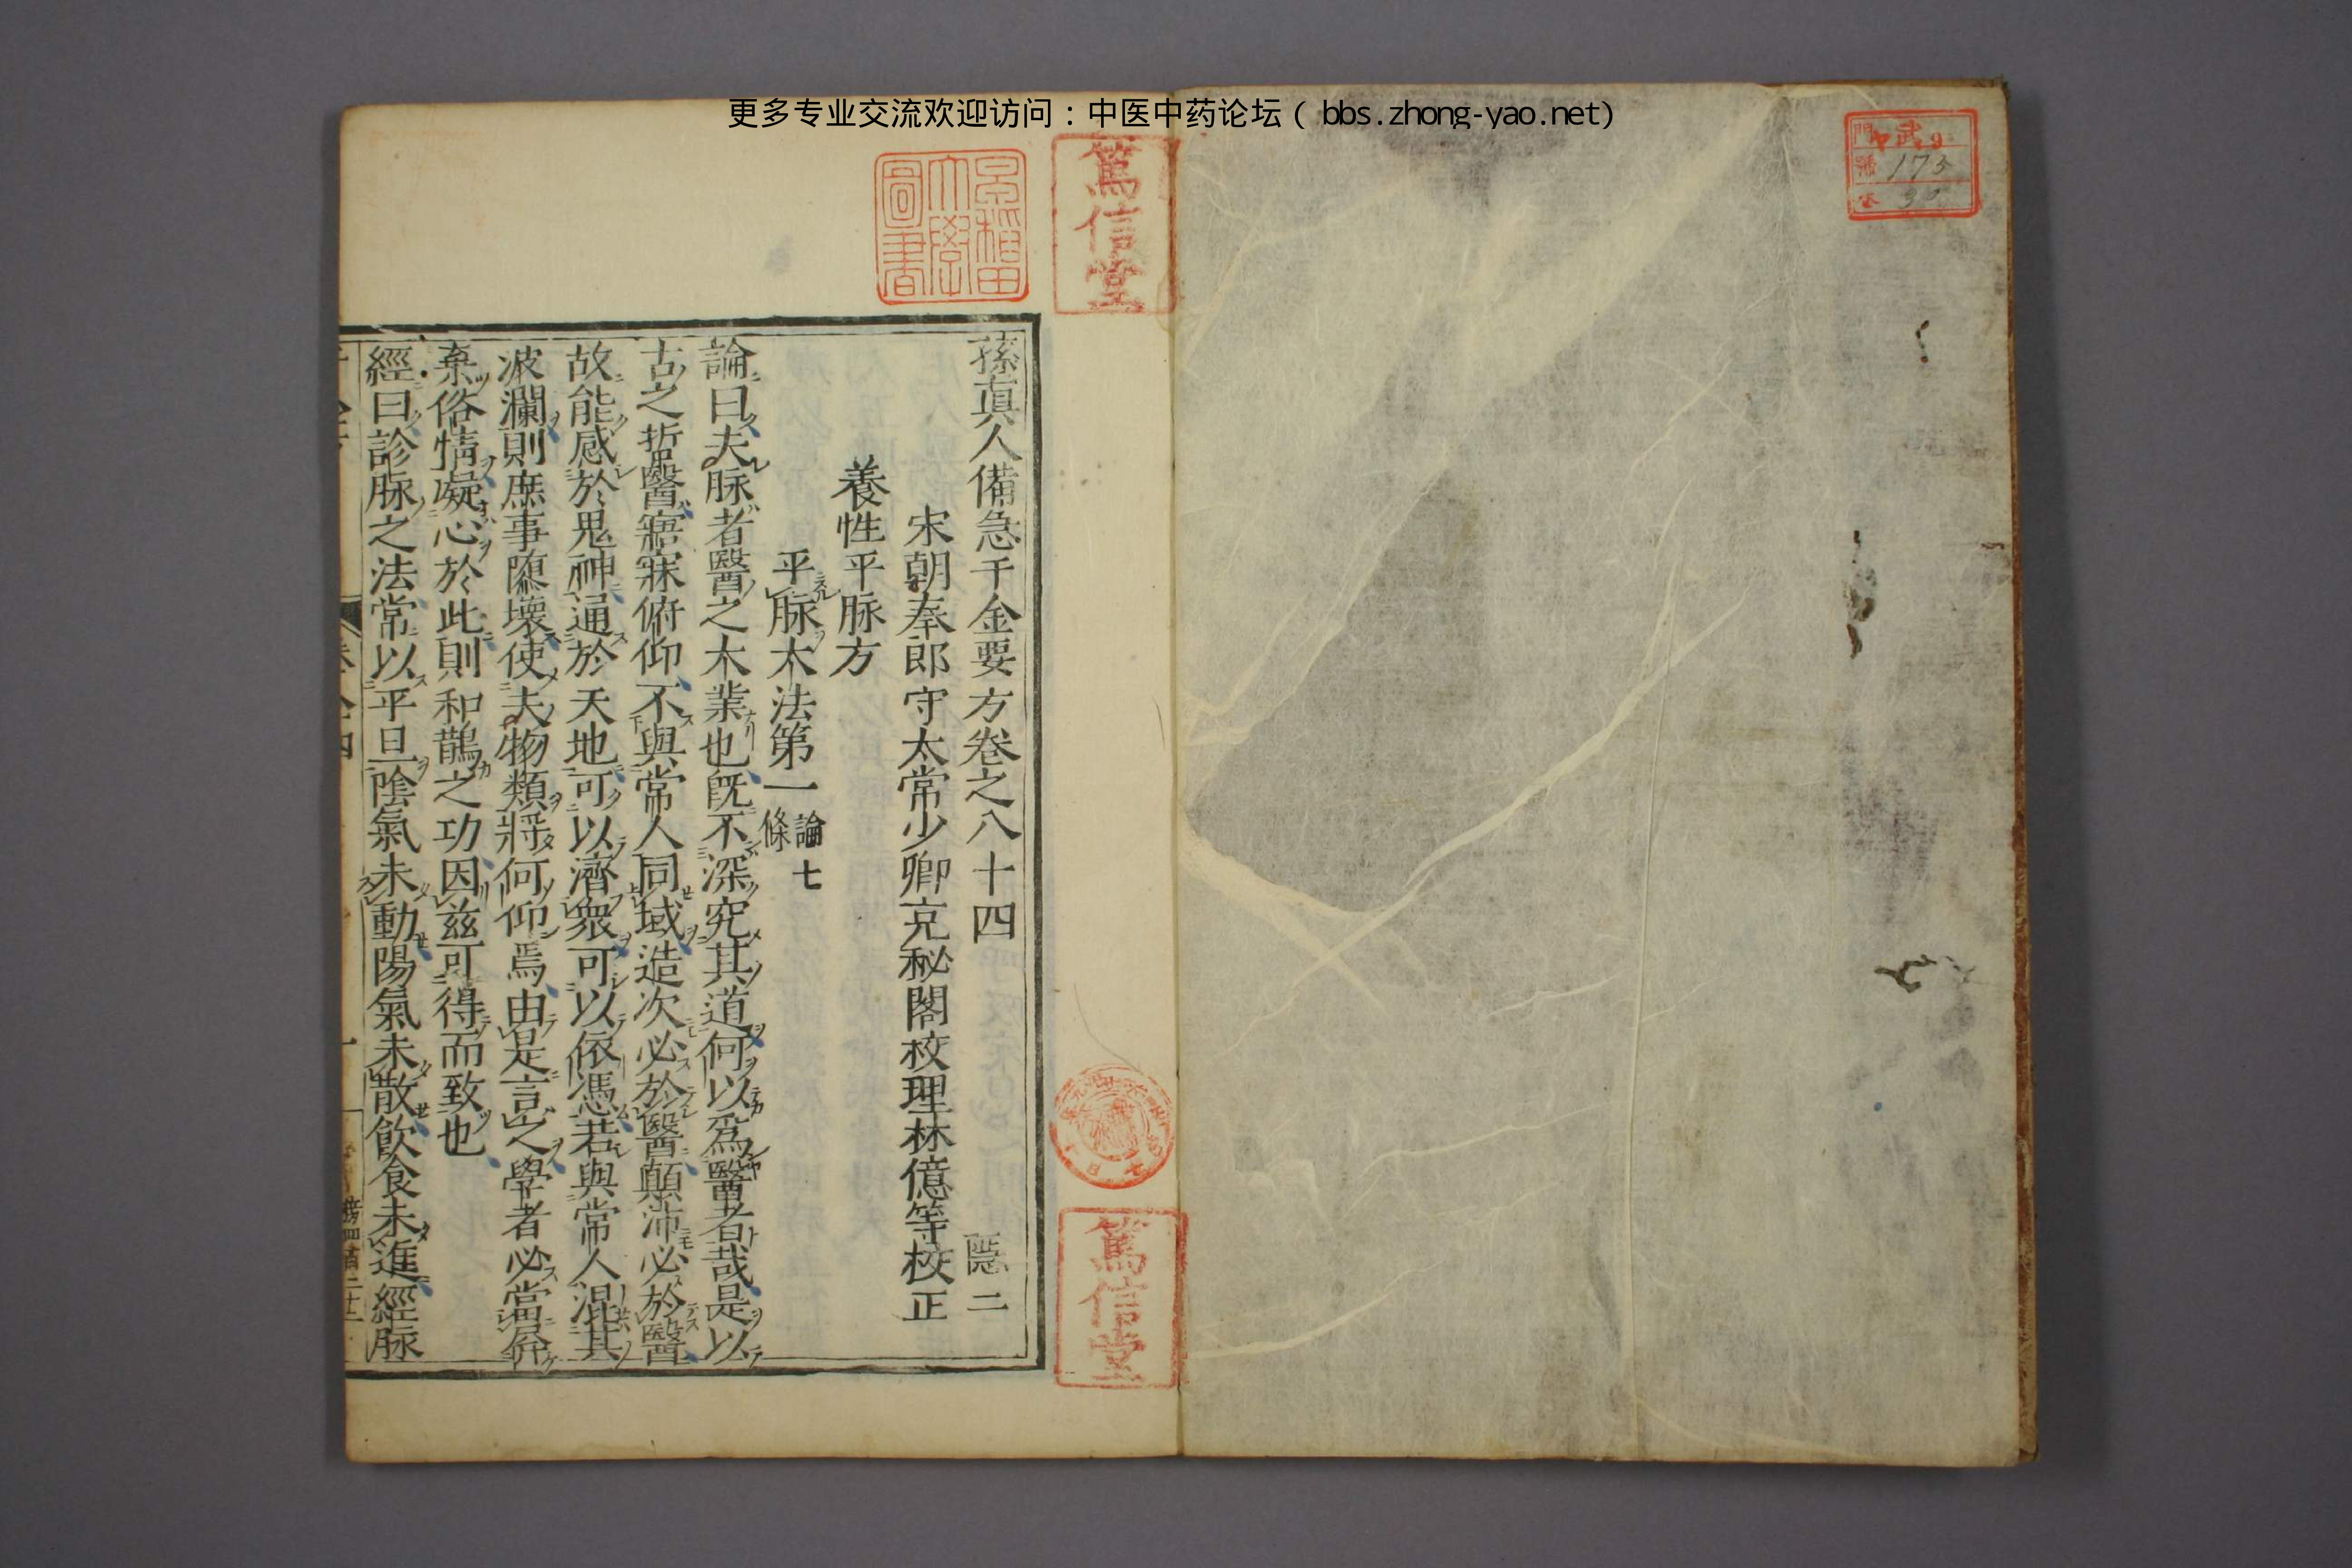 更多专业交流欢迎访问：中医中药论坛（bbs.zhong-yao.net）
武
門
9
番 173
篤信堂
早稲田大學圖書
孫眞人備急千金要方卷之八十四 隱二
宋朝奉郎守太常少卿充秘閣校理林億等校正
養性平脉方
平脉大法第一 論七條
論曰夫脉者醫之大業也旣不深究其道何以爲醫者哉是以
古之哲醫寤寐俯仰不與常人同域造次必於醫顛沛必於醫
故能感於鬼神通於天地可以濟衆可以依憑若與常人混其
波瀾則庶事隳壞使夫物類將何仰焉由是言之學者必當屏
棄俗情凝心於此則和鵲之功因茲可得而致也
經曰診脉之法常以平旦陰氣未動陽氣未散飲食未進經脉
篤信堂